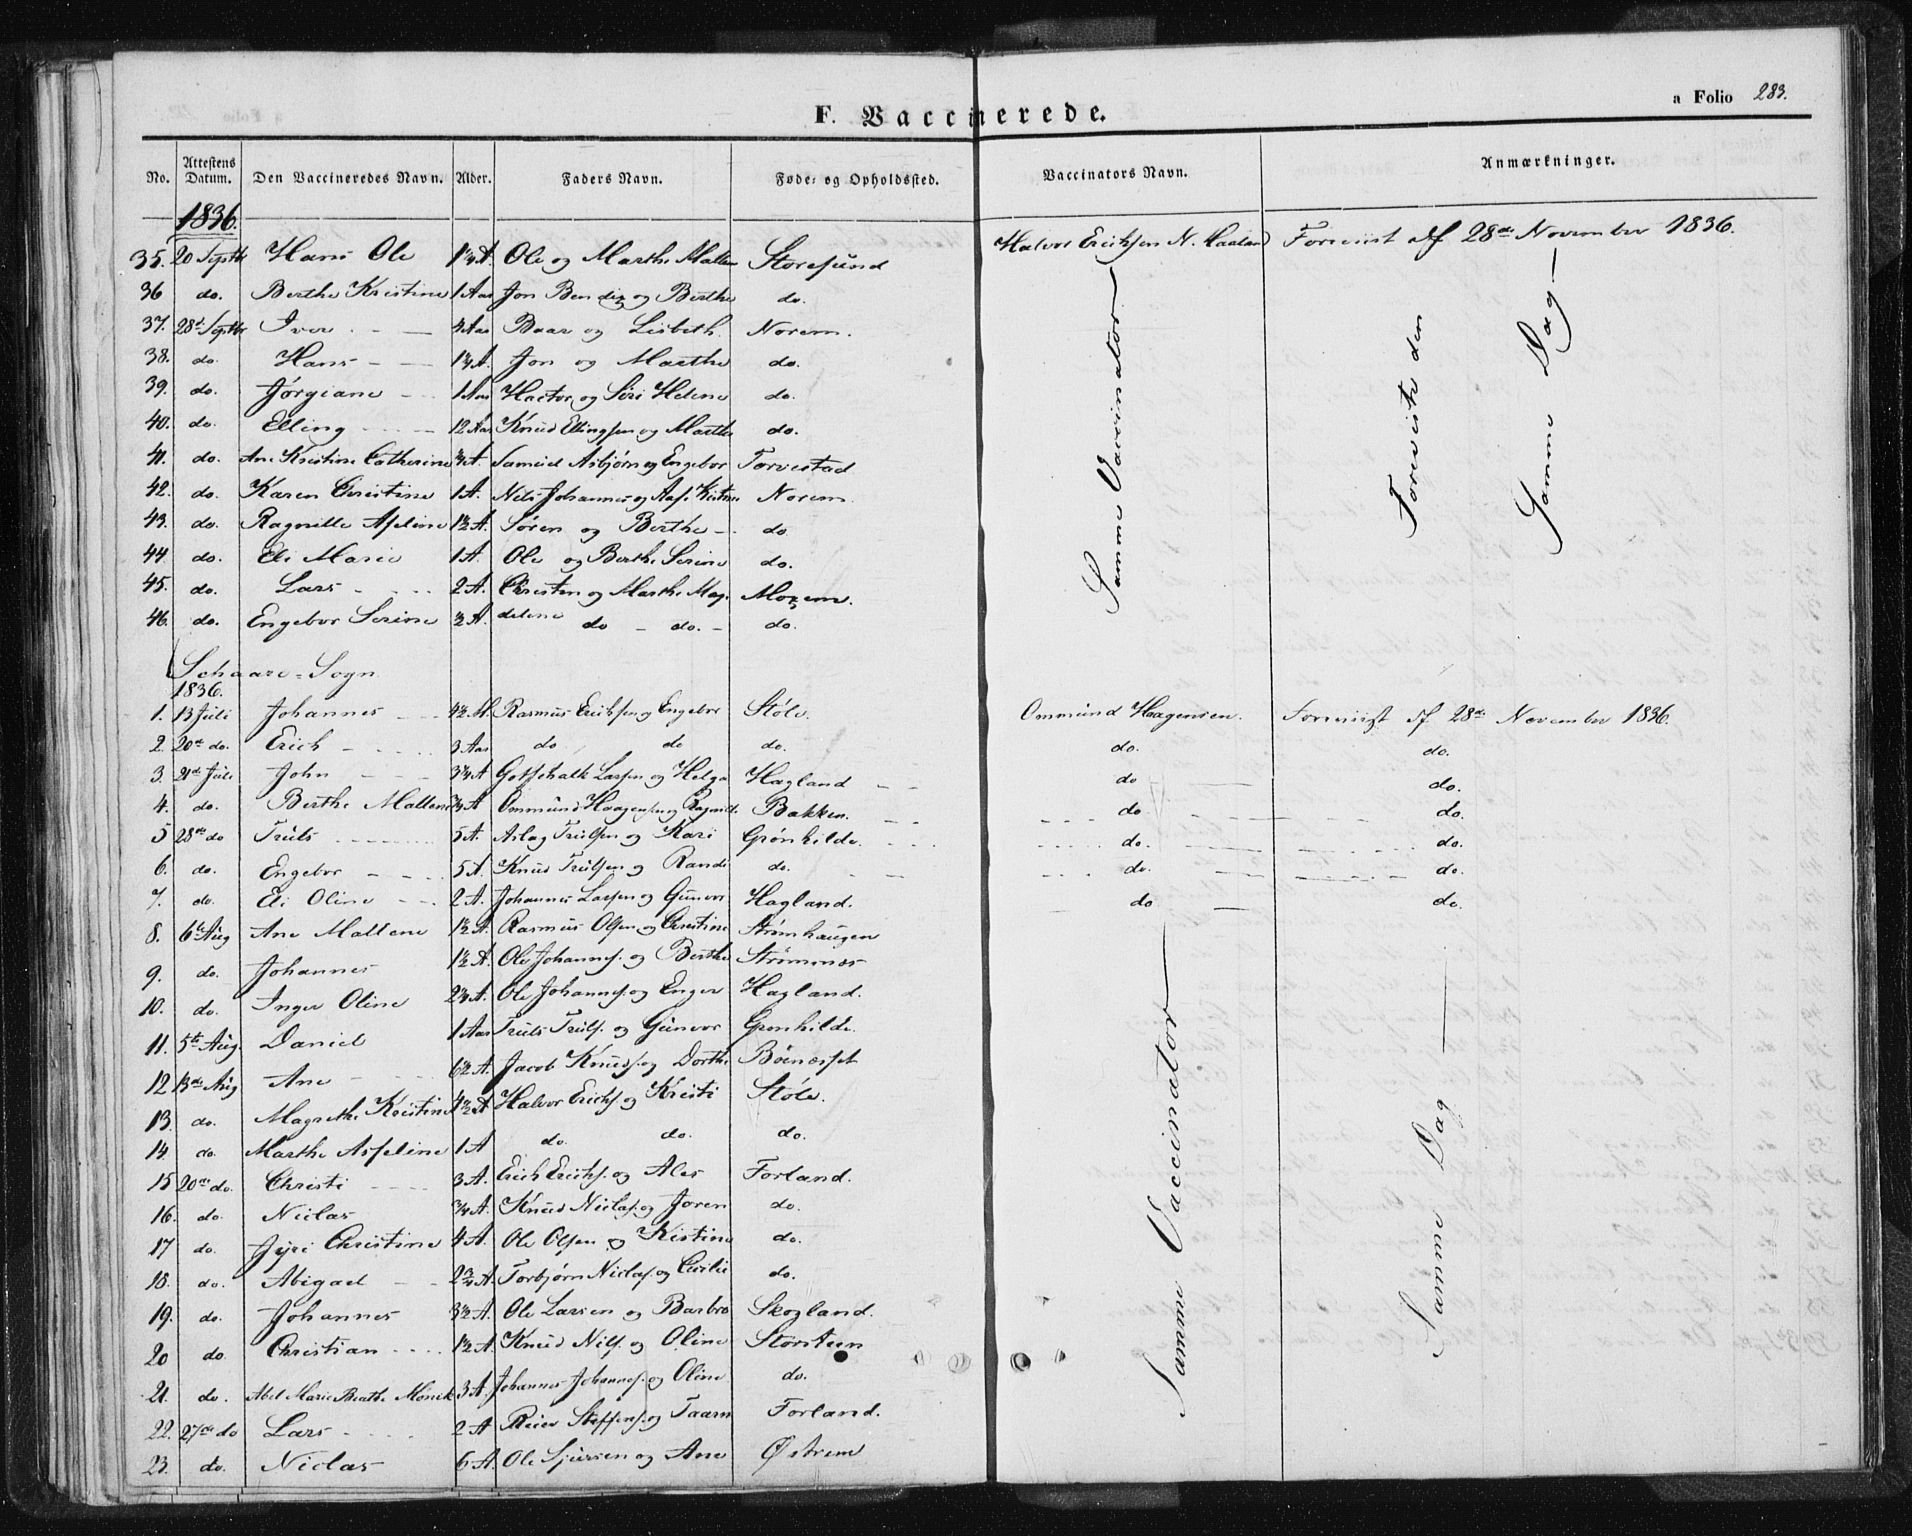 a Folio 283.
F. Vaccinerede.
No. Attestens Datum. Den Vaccineredes Navn. Alder. Faders Navn. Føde- og Opholdssted. Vaccinators Navn. Anmærkninger.
1836.
35. 20 Septbr Hans Ole 1¼ A. Ole og Marthe Malene Storesund Halvor Ericksen N. Haaland Foreviist d. 28de November 1836.
36 do. Berthe Kristine 1 Aar Jon Bendix og Berthe do.
37. 28de Septbr Iver 4 Aar Baar og Lisbeth Norem.
38. do. Hans 1¼ A. Jon og Marthe do.
39. do. Jørgiane 1 Aar Hactor og Siri Helene do.
40. do. Elling 12 Aar Knud Ellingsen og Marthe do.
41. do. Ane Kristine Catherine ¾ A. Samuel Asbjørn og Engebor Torvestad
42. do. Karen Christine 1 A. Nils Johannes og Kistine Norem.
43. do. Ragnille Aseline 1½ A. Søren og Berthe do
44. do. Eli Marie 1 A. Ole og Berthe Serine do.
45. do. Lars 2 A. Christen og Marthe Mag- Norem.
46. do. Engebor Serine ½ A. delene do - do. - do.
Samme Vaccinator
Foreviste den
Samme Dag
Schaare-Sogn
1836.
1. 13 Juli Johannes 4½ M. Rasmus Ericksen og Engebor Støle. Ommund Haagensen. Foreviist d. 28de November 1836.
2. 20de do. Erich 3 Aar do do do. do. do.
3. 21de Juli John 3¼ A Gotschalk Larsen og Helga Hagland do do.
4. do. Berthe Mallene ¾ A Ommund Haagensen og Ragnilde Bakken. do do.
5 28de do Truls 5 A. Aslag Trulsen og Kari Grønhilde. do. do.
6. do. Engebor 5 A. Knud Trulsen og Randi do. do. do.
7. do. Eli Oline 2 A. Johannes Larsen og Gunvor Hagland. do do.
8. 6te Aug Ane Mallene 1½ A. Rasmus Olsen og Christine Strømhaugen
9. do. Johannes 1½ A. Ole Johannes. og Berthe Strømnæs
10. do. Inger Oline 2¼ A. Ole Johannes. og Enger Hagland.
11. 5te Aug. Daniel 1 Aar Truls Truls. og Gunvor Grønhilde.
12 13de Aug Ane 6½ A. Jacob Knuds. og Dorthe
13. do. Magrethe Kristine 4½ A Halvor Ericks. og Kristi Støle.
14. do. Marthe Asseline 1 A do. do. do.
15 20de do. Christi 3 A. Erich Ericks. og Ales Forland.
16. do. Niclas ¾ A. Knud Niclas. og Joren do.
17 do. Jyri Christine 4 A. Ole Olsen og Kistine do.
18. do. Abigael 2¾ A. Torbjørn Niclas. og Cicilie do.
19. do. Johannes 3½ A. Ole Larsen og Barbro Skogland.
20 do. Christian 1½ A. Knud Nils. og Oline Storsteen
21. do. Abel Marie Mønik 3 A. Johannes Johannes. og Oline do.
22. 27de do Lars 2 A Reier Steffens. og Taarn Forland.
23. do. Niclas 6 A. Ole Sjursen og Ane Østrem
Samme Vaccinator
Samme Dag